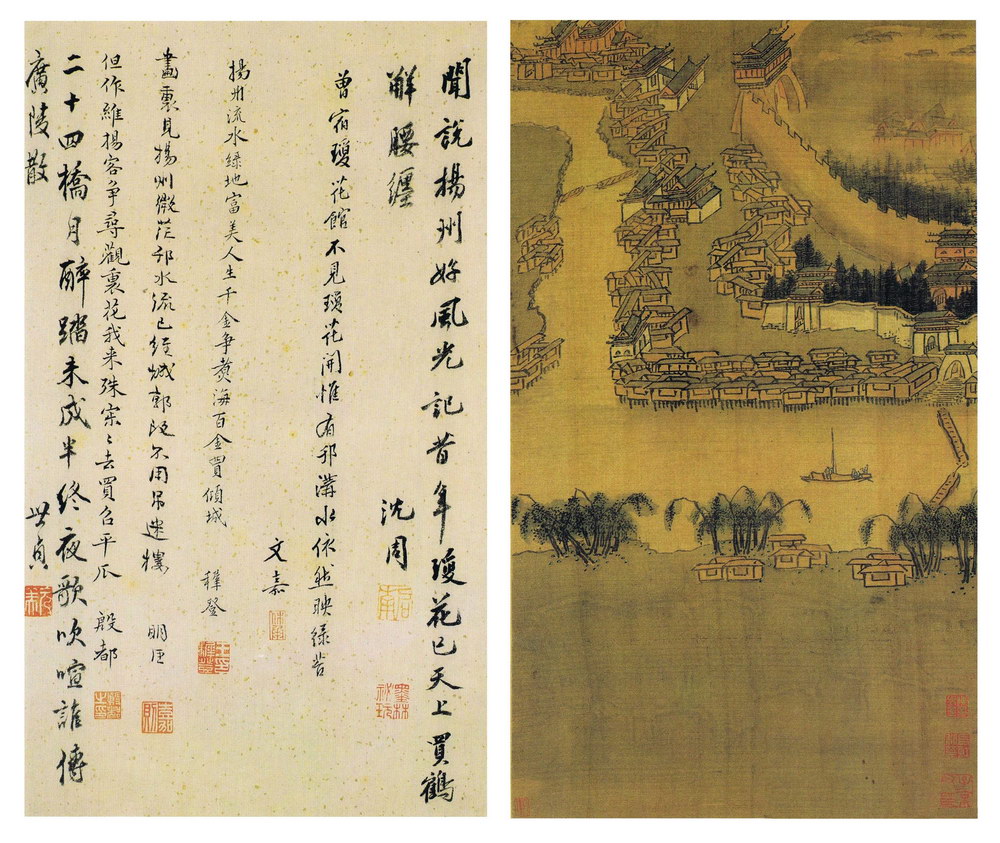 聞說揚州好風光記昔年瓊花已天上買鶴
解腰纏
沈周
曾宿瓊花館不見瓊花開惟有邗溝水依然映綠苔
文嘉
揚州流水綠地富美人生千金爭煮海百金買傾城
穉登
畫裏見揚州微茫邗水流已經城郭改不用吊迷樓
明臣
但作維揚客爭尋觀裏花我來殊寂〻去買召平瓜
殷都
二十四橋月醉踏未成半終夜歌吹喧誰傳
廣陵散
世貞